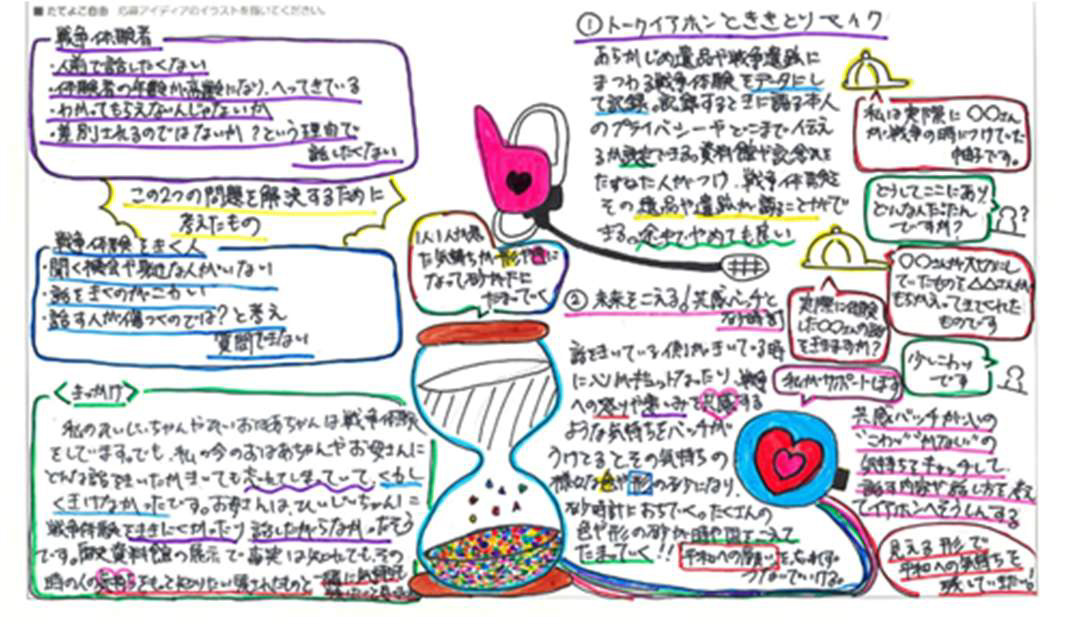 ■ たてよこ自由　応募アイディアのイラストを描いてください。
戦争体験者
・人前で話したくない
・体験者の年齢が高齢になり、へってきている
・わかってもらえないんじゃないか
・差別されるのではないか？という理由で
話したくない
この2つの問題を解決するために
考えたもの
戦争体験をきく人
・聞く機会や身近な人がいない
・話をきくのがこわい
・話す人が傷つくのでは？と考え
質問できない
＜きっかけ＞
私のひいじいちゃんやひいおばあちゃんは戦争体験
をしています。でも、私の今のおばあちゃんやお母さんに
どんな話をきいたかきいても忘れてしまっていて、くわし
くきけなかったです。お母さんは、ひいじいちゃんに
戦争体験をききにくかったり 話したがらなかったそう
です。資料館の展示で事実は知れても、その
時の人の気持ち
① トークイアホンとききとりマイク
あらかじめ遺品や戦争遺跡に
まつわる戦争体験をデータにし
て記録。記録するときに語る本人
のプライバシーやどこまで伝え
るか設定できる。資料館や記念館を
たずねた人がつけ、戦争体験を
その遺品や遺跡が語ることがで
きる。途中でやめても良い
私は実際に〇〇さん
が戦争の時につけていた
帽子です。
どうしてここにあり、
どんな人だったん
ですか？
〇〇さんが大切にし
ていたものを△△さんが
もちかえってきてくれた
ものです
実際に体験
した〇〇さんの話
をききますか？
少しこわい
です
私がサポートします
1人1人が感じ
た気持ちが形や色に
なって砂がたに
たまっていく
② 未来をこえる！共感バッチと
なり時計
話をきいている側がきいている時
に心がキュッとなったり、戦争
への怒りや悲しみで共感する
ような気持ちをバッチが
うけとると、その気持ちの
様々な色や形の砂になり、
砂時計におちていく。たくさんの
色や形の砂が時や国をこえて
たまっていく！！
平和への願いを忘れず
つないでいける。
共感バッチが心の
"こわい"
気持ちをキャッチして、
話す内容や話し方を考え
てイアホンへそうしんする
見える形で
平和への気持ちを
残していきたい！